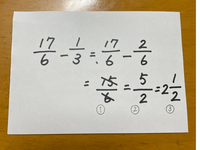 17/6 - 1/3 = 17/6 - 2/6
= 15/6 = 5/2 = 2 1/2
① ② ③